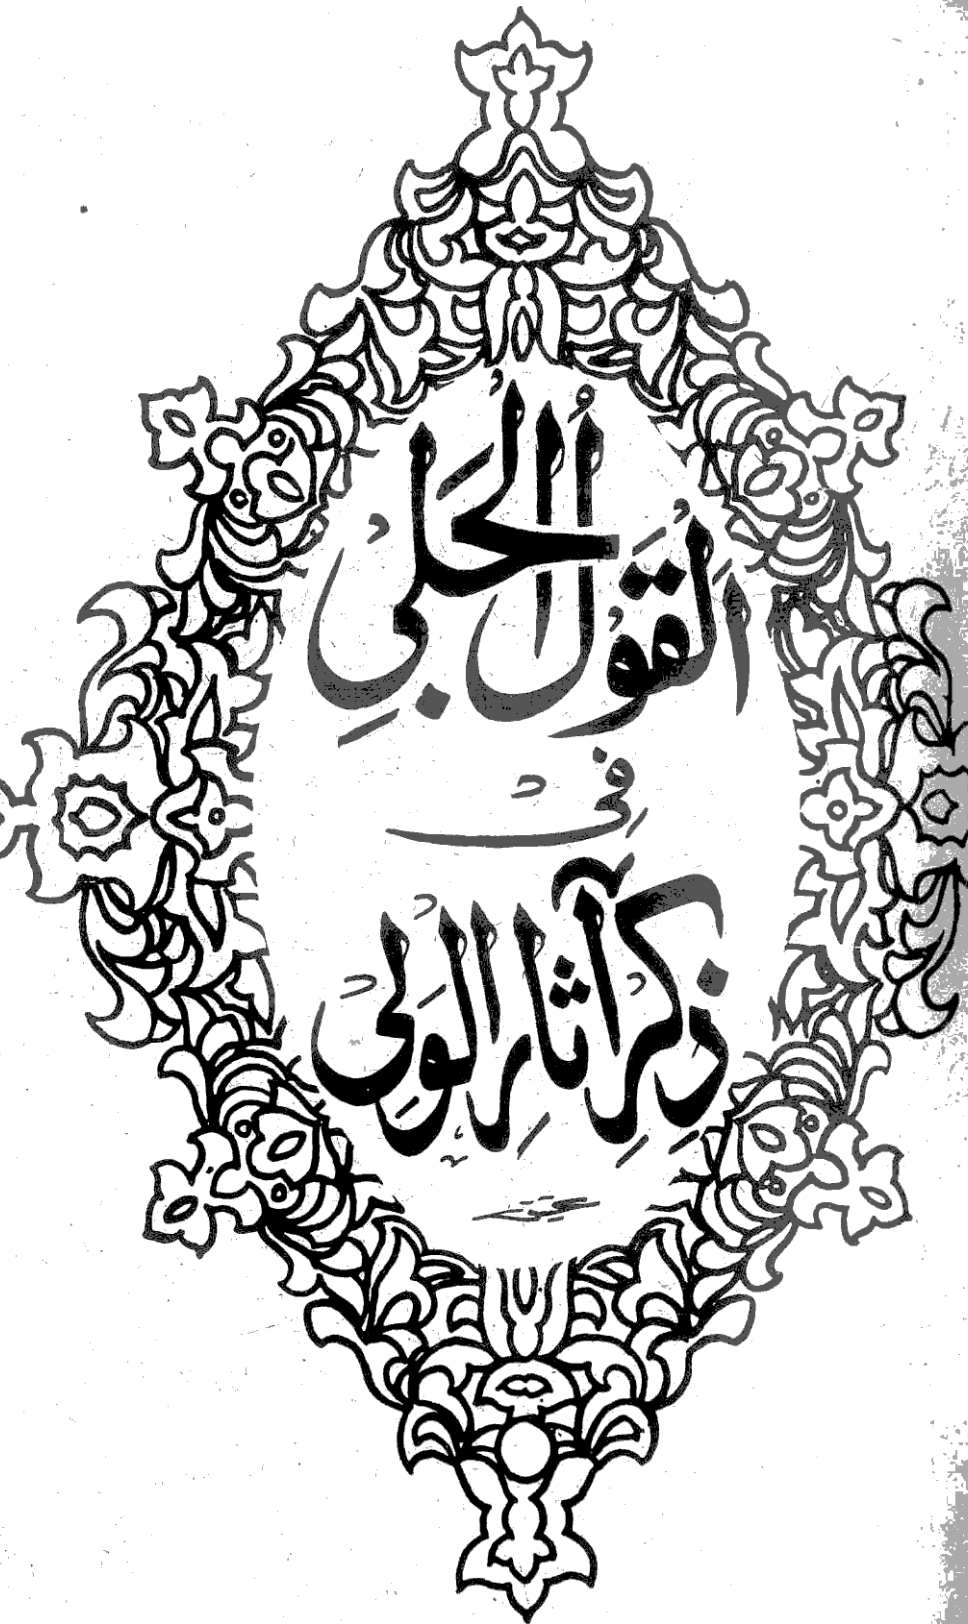 القول الجلى
فى
ذكر آثار الولى